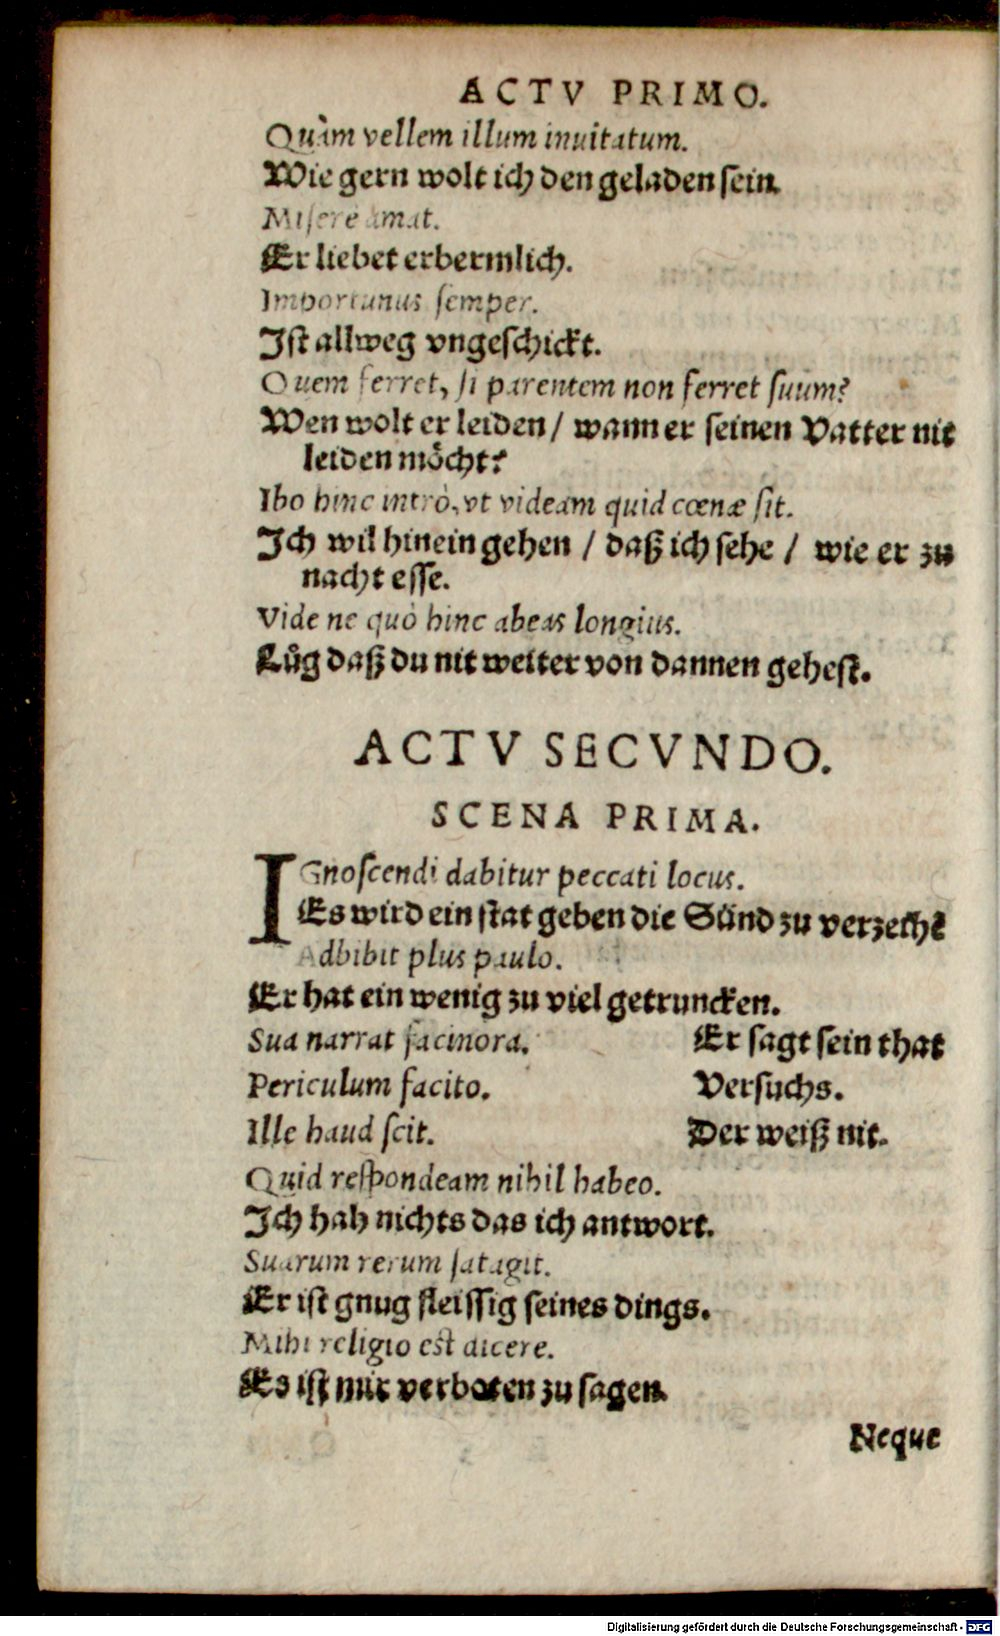 ACTV PRIMO.
Quàm vellem illum inuitatum.
Wie gern wolt ich den geladen sein.
Miserè amat.
Er liebet erbermlich.
Importunus semper.
Ist allweg vngeschickt.
Quem ferret, si parentem non ferret suum?
Wen wolt er leiden / wann er seinen Vatter nit
leiden möcht?
Ibo hinc intrò, vt videam quid cœnæ sit.
Ich wil hinein gehen / daß ich sehe / wie er zu
nacht esse.
Vide ne quò hinc abeas longius.
Lůg daß du nit weiter von dannen gehest.
ACTV SECVNDO.
SCENA PRIMA.
IGnoscendi dabitur peccati locus.
Es wird ein stat geben die Sünd zu verzeihē
Adbibit plus paulo.
Er hat ein wenig zu viel getruncken.
Sua narrat facinora. Er sagt sein that
Periculum facito. Versuchs.
Ille haud scit. Der weiß nit.
Quid respondeam nihil habeo.
Ich hab nichts das ich antwort.
Suarum rerum satagit.
Er ist gnug fleissig seines dings.
Mihi religio est dicere.
Es ist mir verboten zu sagen.
Neque
Digitalisierung gefördert durch die Deutsche Forschungsgemeinschaft - DFG